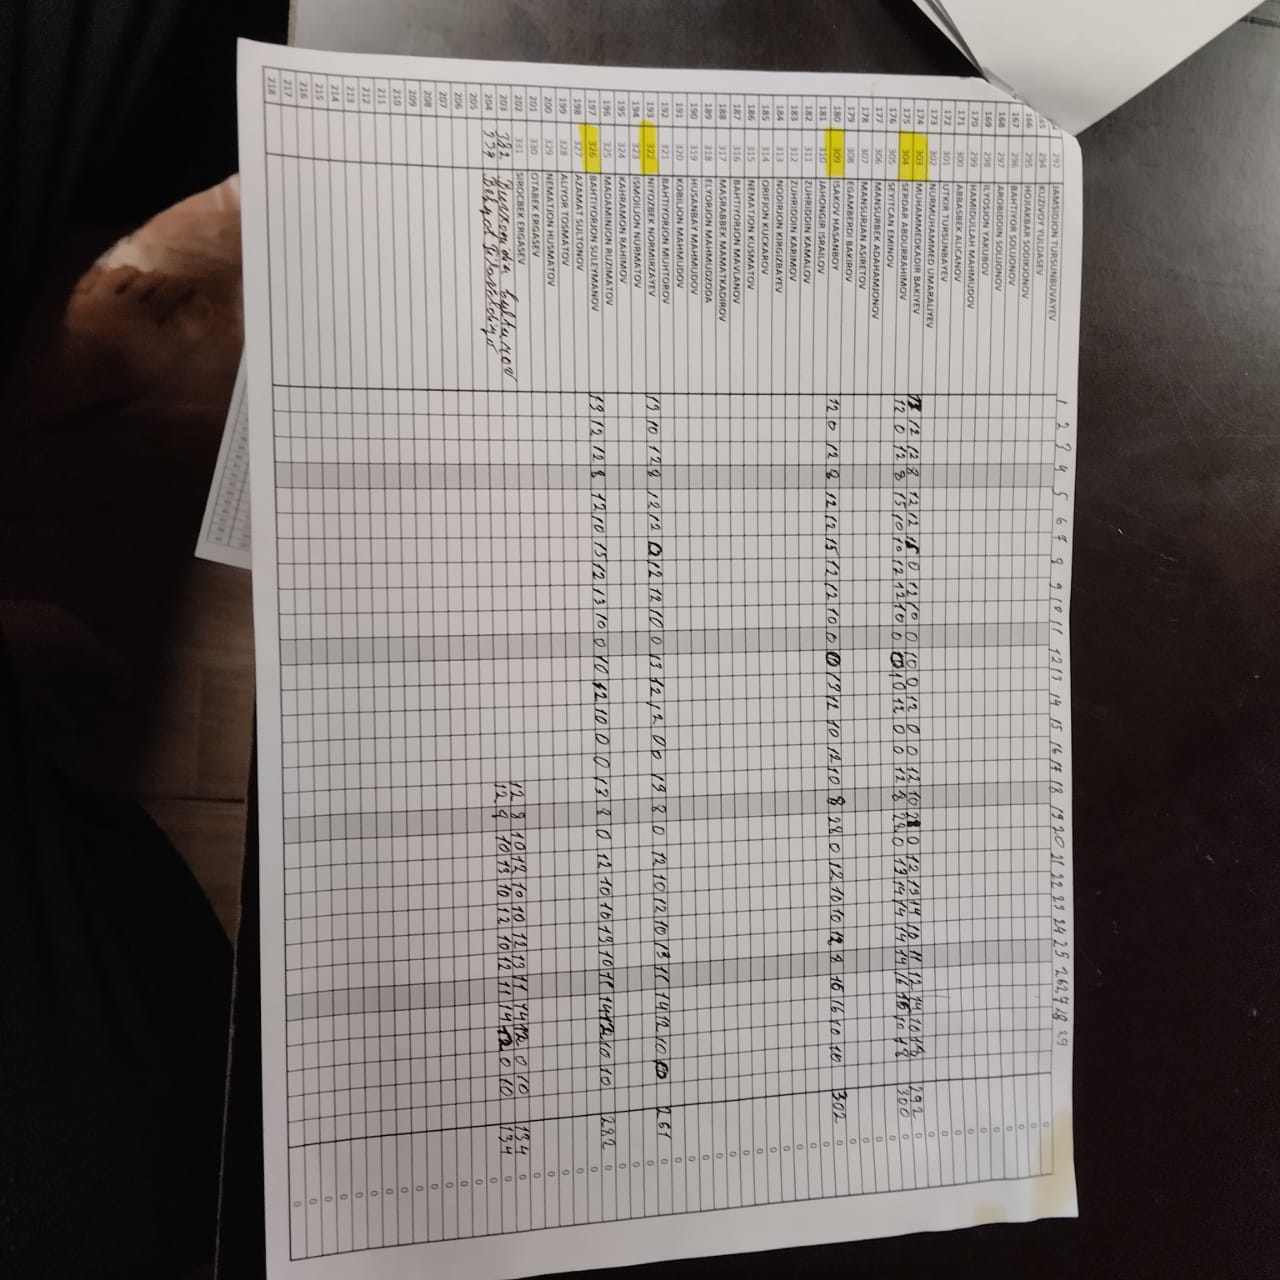 1 2 3 4 5 6 7 8 9 10 11 12 13 14 15 16 17 18 19 20 21 22 23 24 25 26 27 28 29
292 JAMSIDJON TURSUNBUVAYEV 0
165 294 KUZIVOY YULDASEV 0
166 295 HOJIAKBAR SODIKJONOV 0
167 296 BAHTIYOR SOLIJONOV 0
168 297 AROBIDDIN SOLIJONOV 0
169 298 ILYOSJON YAKUBOV 0
170 299 HAMIDULLAH MAHMUDOV 0
171 300 ABBASBEK ALICANOV 0
172 301 UTKIR TURSUNBAYEV 0
173 302 NURMUHAMMED UMARALIYEV 0
174 303 MUHAMMEDKADIR BAKIYEV 12 12 8 12 12 15 0 12 10 0 10 0 12 0 0 12 10 0 12 13 14 10 11 12 14 10 18 292 0
175 304 SERDAR ABDURRAHIMOV 12 0 12 8 15 10 10 12 12 10 0 0 10 12 0 0 12 8 28 0 13 14 14 14 14 16 16 10 18 300 0
176 305 SEYITCAN EMINOV 0
177 306 MANSURBEK ADAHAMJONOV 0
178 307 MANSURJAN ASIRETOV 0
179 308 EGAMBERDI BAKIROV 0
180 309 ISAKOV HASANBOY 12 0 12 8 12 12 15 12 12 10 0 0 13 12 10 12 10 8 28 0 12 10 10 12 8 16 16 10 10 302 0
181 310 JAHONGIR ISRAILOV 0
182 311 ZUHRIDDIN KAMALOV 0
183 312 ZUHRIDDIN KARIMOV 0
184 313 NODIRJON KIRGIZBAYEV 0
185 314 ORIFJON KUCKAROV 0
186 315 NEMATJON KUSMATOV 0
187 316 BAHTIYORJON MAVLANOV 0
188 317 MASRABBEK MAMATKADIROV 0
189 318 ELYORJON MAHMUDZODA 0
190 319 HUSANBAY MAHMUDOV 0
191 320 KOBILJON MAHMUDOV 0
192 321 BAHTIYORJON MUHTOROV 0
193 322 NIYOZBEK NORMIRZAYEV 13 10 12 8 12 12 0 12 12 10 0 13 12 12 0 0 13 8 0 12 10 12 10 13 11 14 12 10 261 0
194 323 ISMOILJON NURMATOV 0
195 324 KAHRAMON RAHIMOV 0
196 325 MADAMINJON RUZIMATOV 0
197 326 BAHTIYORJON SULEYMANOV 13 12 12 8 12 10 15 12 13 10 0 10 12 10 0 0 13 8 0 12 10 10 13 10 11 14 12 10 10 282 0
198 327 AZAMAT SULTONOV 0
199 328 ALIYOR TOSMATOV 0
200 329 NEMATJON HUSMATOV 0
201 330 OTABEK ERGASEV 0
202 331 SIROCBEK ERGASEV 0
203 332 12 8 10 12 10 10 12 13 11 14 12 0 10 134 0
204 12 10 13 10 12 10 12 11 14 12 0 10 134 0
205 0
206 0
207 0
208 0
209 0
210 0
211 0
212 0
213 0
214 0
215 0
216 0
217 0
218 0